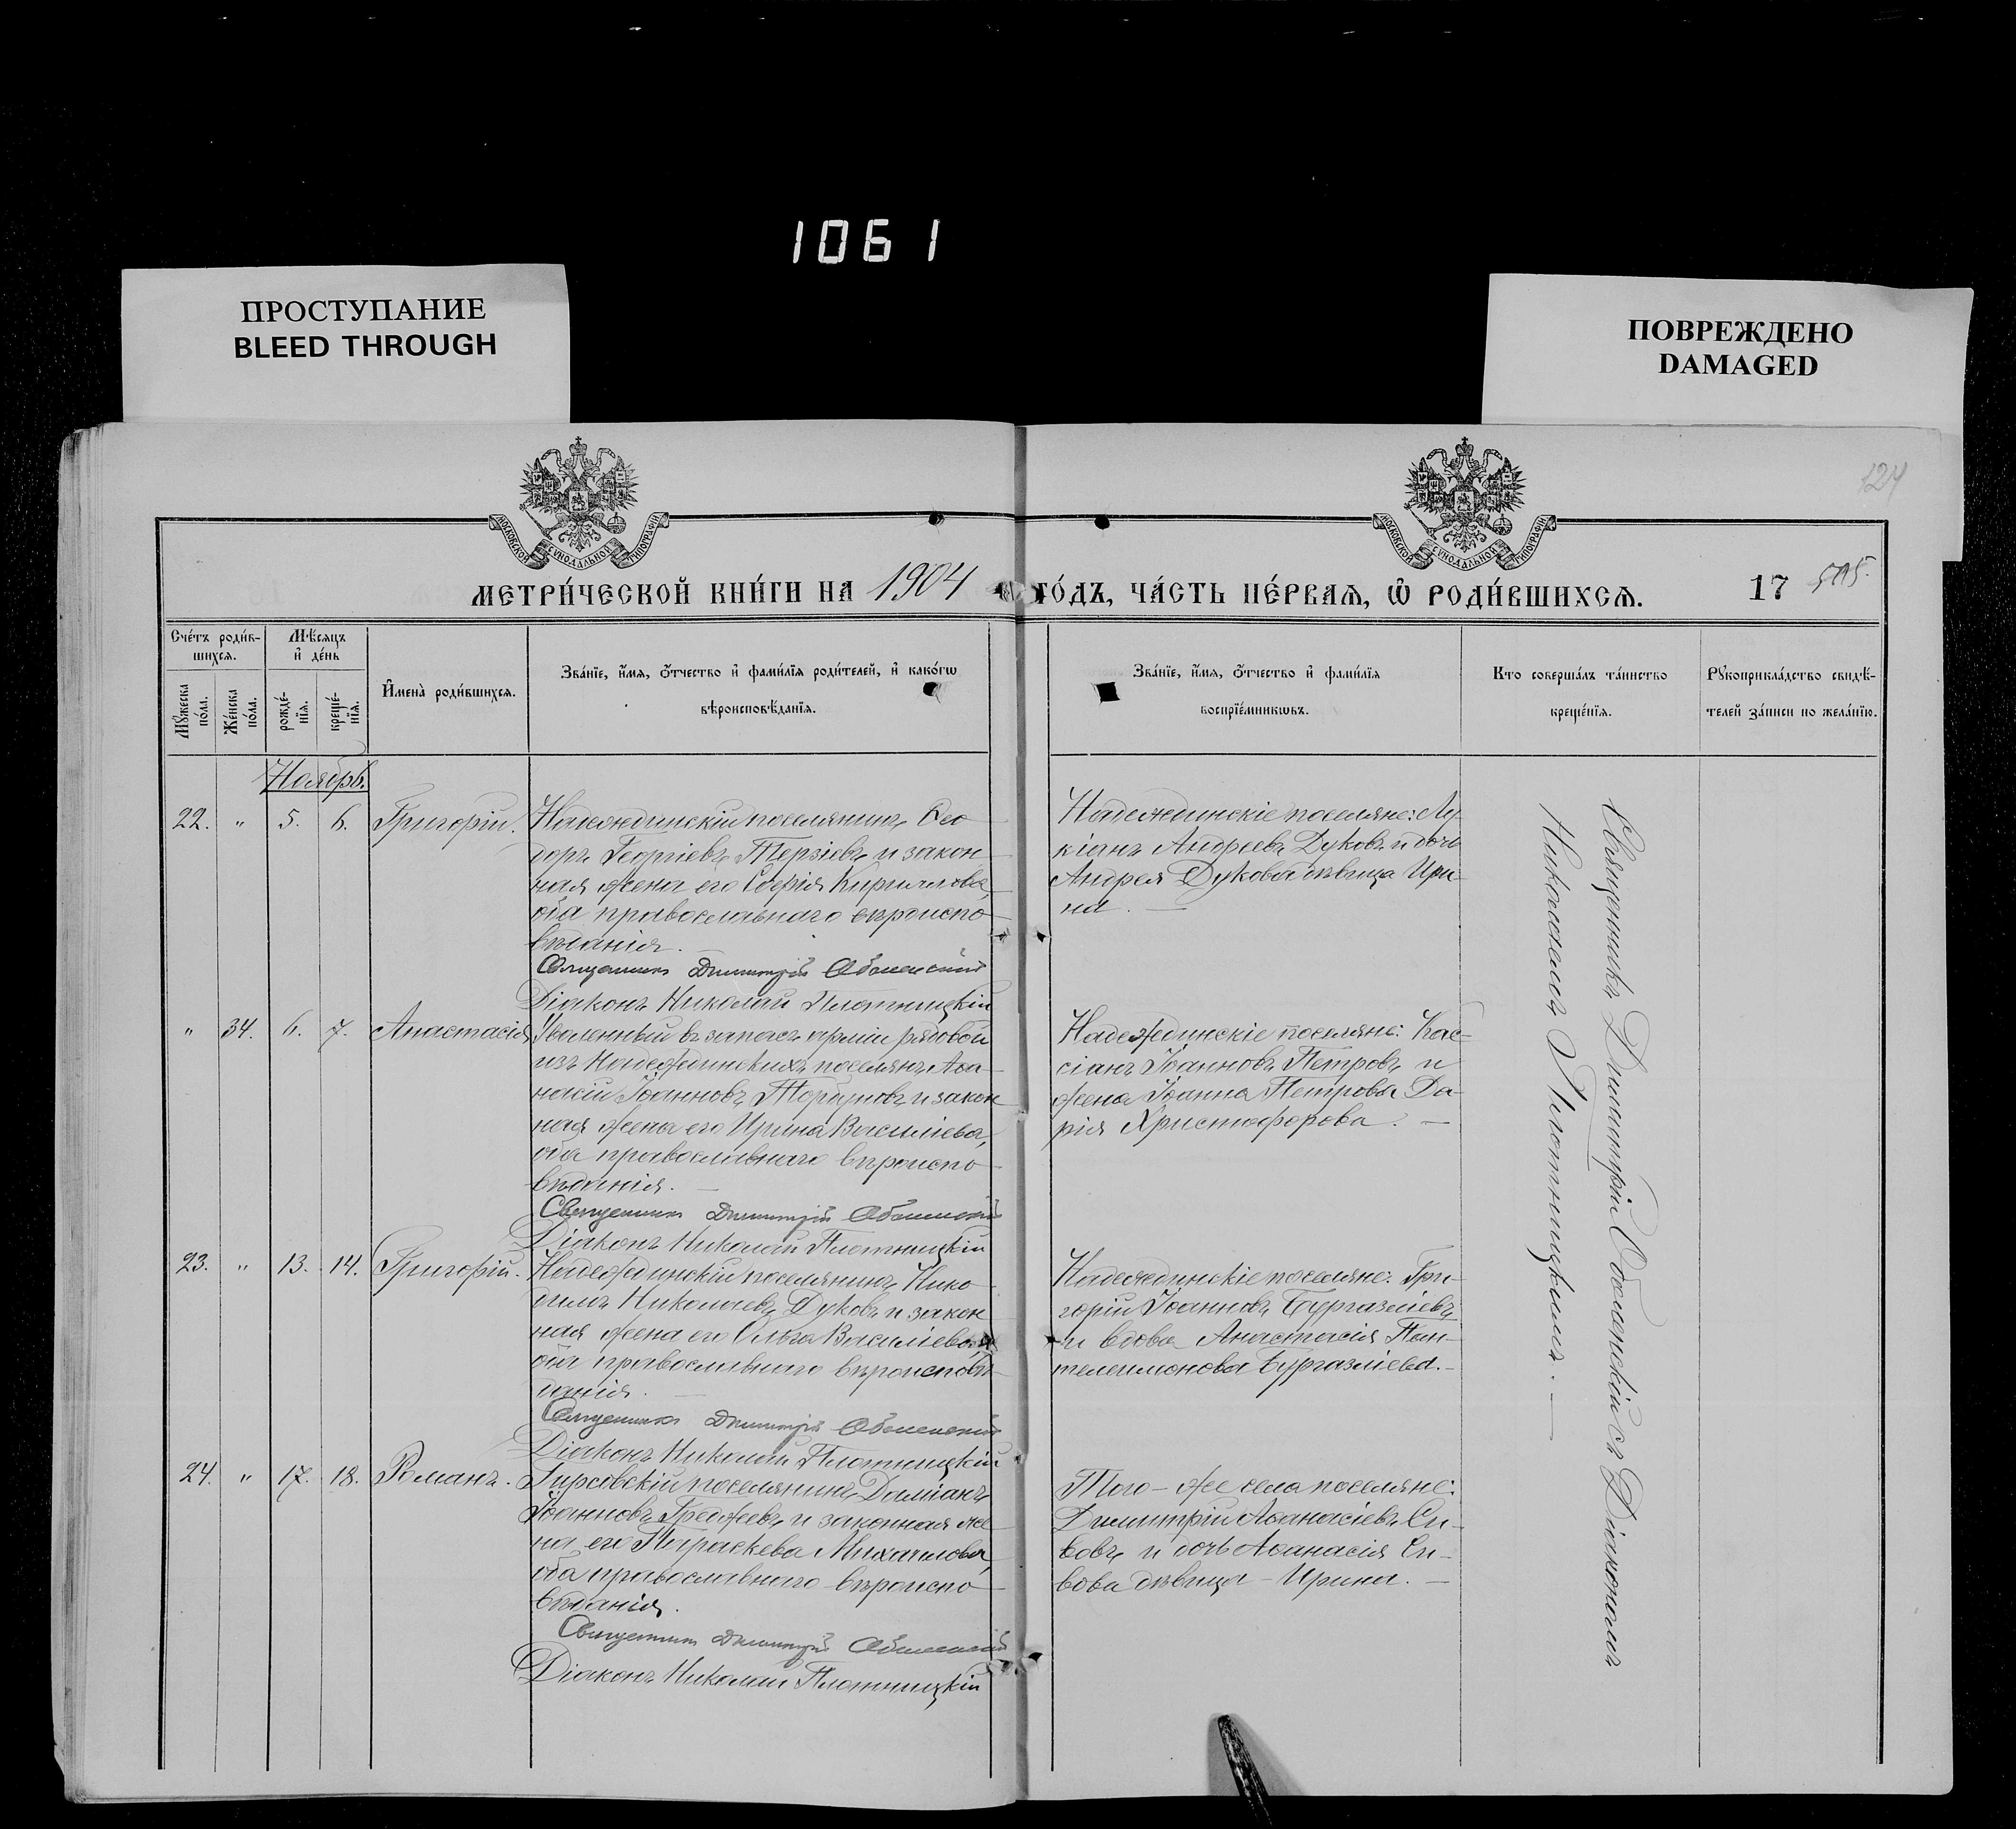 1061
ПРОСТУПАНИЕ
BLEED THROUGH
ПОВРЕЖДЕНО
DAMAGED
124
МОСКОВСКОЙ СУНОДАЛЬНОЙ ТИПОГРАФІИ
МОСКОВСКОЙ СУНОДАЛЬНОЙ ТИПОГРАФІИ
МЕТРИ́ЧЕСКОЙ КНИ́ГИ НА 1904 ГО́ДЪ, ЧА́СТЬ ПЕ́РВАѦ, Ѡ҆ РОДИ́ВШИХСѦ. 17
Сче́тъ роди́в-
шихсѧ.
Мꙋ́жеска по́ла.
Же́нска по́ла.
Мѣ́сѧцъ и҆ де́нь
рожде́-нїѧ.
креще́-нїѧ.
И҆мена̀ роди́вшихсѧ.
Зва́нїе, и҆́мѧ, ѻ҆́тчество и҆ фами́лїѧ роди́телей, и҆ како́гѡ
вѣроисповѣ́данїѧ.
Зва́нїе, и҆́мѧ, ѻ҆́тчество и҆ фами́лїѧ
воспрїе́мникѡвъ.
Кто соверша́лъ та́инство
креще́нїѧ.
Рꙋкоприкла́дство свидѣ́-
телей за́писи по жела́нїю.
Ноябрь.
22. " 5. 6. Григорій.
Надеждинскій поселянинъ Ѳео
доръ Георгіевъ Терзіевъ и закон
ная жена его Софія Кириллова,
оба православнаго вѣроиспо
вѣданія.
Священникъ Димитрій Оболенскій
Діаконъ Николай Плотницкій
Надеждинскіе поселяне: Лу
кіанъ Андреевъ Дуковъ и дочь
Андрея Дукова дѣвица Ири
на. —
" 34. 6. 7. Анастасія
Уволенный въ запасъ арміи рядовой
изъ Надеждинскихъ поселянъ Аѳа
насій Іоанновъ и закон
ная жена его Ирина Василіева,
оба православнаго вѣроиспо
вѣданія. —
Священникъ Димитрій Оболенскій
Діаконъ Николай Плотницкій
Надеждинскіе поселяне: Кас-
сіанъ Іоанновъ Петровъ и
жена Іоанна Петрова Да-
рія Христофорова. —
23. " 13. 14. Григорій.
Надеждинскій поселянинъ Нико
димъ Николаевъ Дуковъ и закон
ная жена его Ольга Василіева,
оба православнаго вѣроисповѣ
данія. —
Священникъ Димитрій Оболенскій
Діаконъ Николай Плотницкій
Надеждинскіе поселяне: Гри-
горій Іоанновъ Бургазліевъ
и вдова Анастасія Пан-
телеимонова Бургазліева. —
24. " 17. 18. Романъ.
поселянинъ Даміанъ
Іоанновъ и законная же
на его Параскева Михаилова,
оба православнаго вѣроиспо
вѣданія.
Священникъ Димитрій Оболенскій
Діаконъ Николай Плотницкій
Того-же села поселяне:
Димитрій Аѳанасіевъ Си-
вовъ и дочь Аѳанасія Си-
вова дѣвица Ирина. —
Священникъ Димитрій Оболенскій съ Діакономъ
Николаемъ Плотницкимъ. —